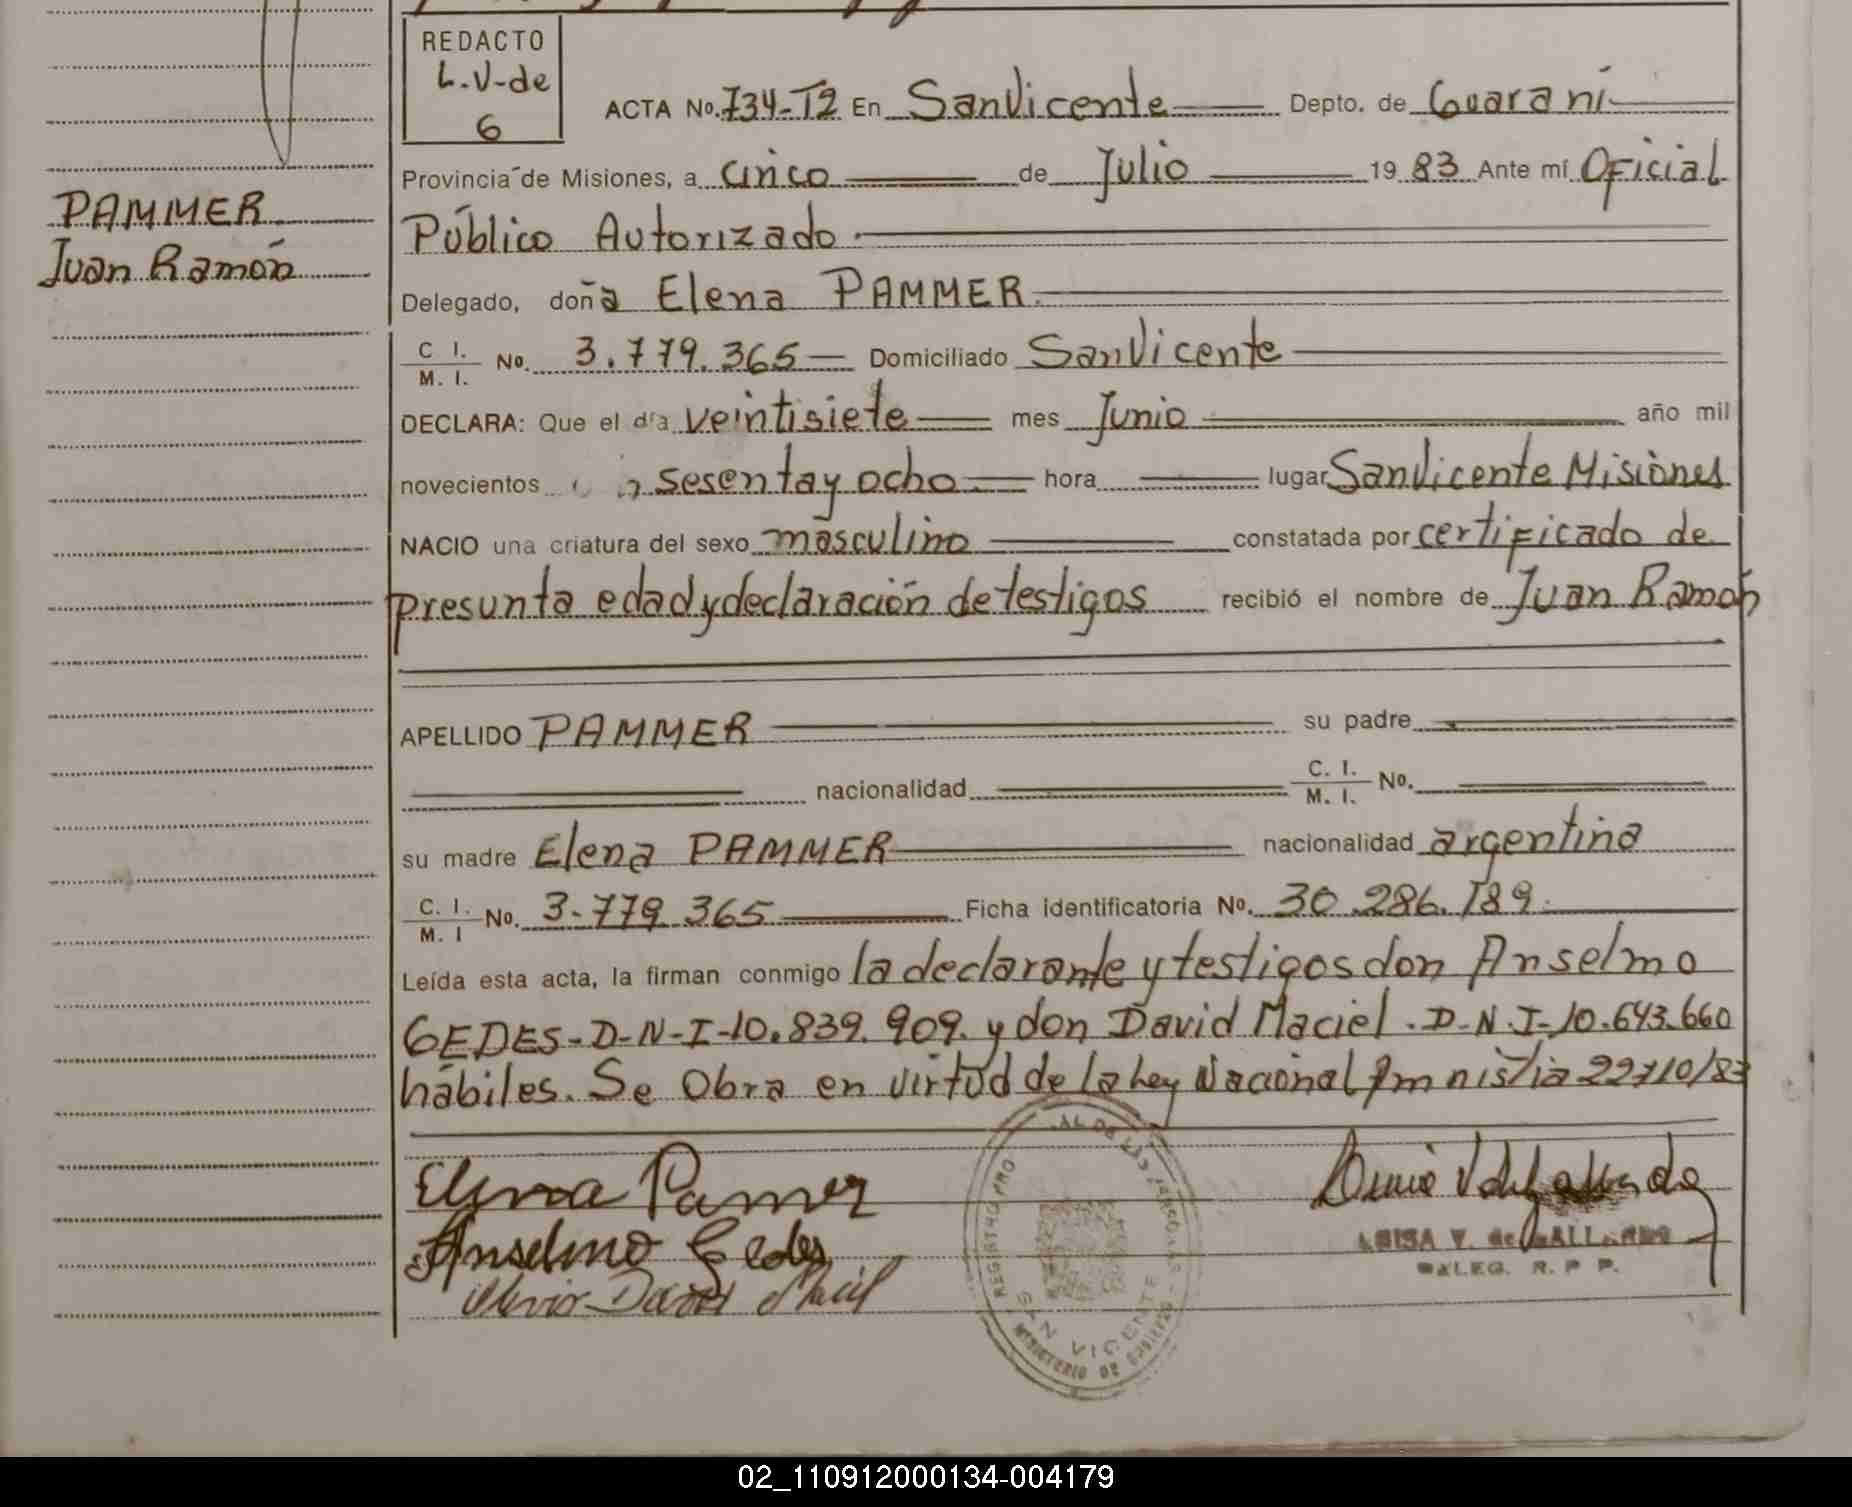 REDACTO
L.V-de
6
ACTA No. 734-T2 En SanVicente Depto. de Guaraní
Provincia de Misiones, a cinco de Julio 19 83 Ante mí Oficial
PAMMER
Juan Ramón
Público Autorizado
Delegado, doña Elena PAMMER
C I. M. I. No. 3.779.365 Domiciliado SanVicente
DECLARA: Que el día veintisiete mes Junio año mil
novecientos sesenta y ocho hora lugar SanVicente Misiones
NACIO una criatura del sexo masculino constatada por certificado de
presunta edad y declaración de testigos recibió el nombre de Juan Ramón
APELLIDO PAMMER su padre
nacionalidad C. I. M. I. No.
su madre Elena PAMMER nacionalidad argentina
C. I. M. I No. 3.779.365 Ficha identificatoria No. 30.286.189.
Leída esta acta, la firman conmigo la declarante y testigos don Anselmo
GEDES-D-N-I-10.839.909. y don David Maciel. D-N.I-10.643.660
hábiles. Se Obra en virtud de la Ley Nacional Amnistia 22710/83
Elena Pamer
Anselmo Gedes
David
SAN VICENTE
LUISA V. de GALLARDO
DELEG. R. P P.
02_110912000134-004179